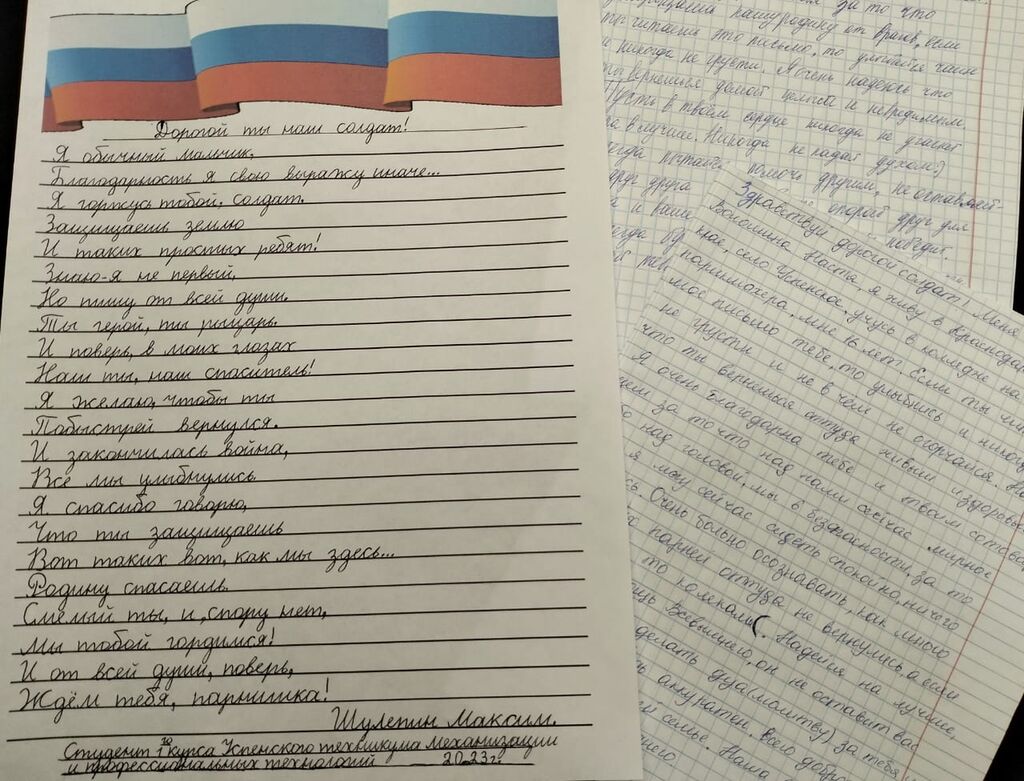 Дорогой ты наш солдат!
Я обычный мальчик,
Благодарность я свою выражу иначе...
Я горжусь тобой, солдат.
Защищаешь землю
И таких простых ребят!
Знаю-я не первый,
Но пишу от всей души.
Ты герой, ты рыцарь.
И поверь, в моих глазах
Наш ты, наш спаситель!
Я желаю, чтобы ты
Побыстрей вернулся.
И закончилась война,
Все мы улыбнулись
Я спасибо говорю,
Что ты защищаешь
Вот таких вот, как мы здесь...
Родину спасаешь.
Смелый ты, и, спору нет,
Мы тобой гордимся!
И от всей души, поверь,
Ждём тебя, парнишка!
Шулепин Максим.
Студент 1го курса Успенского техникума механизации
и профессиональных технологий 2023г.
за то что
нашу родину от врагов, если
ты читаешь это письмо, то улыбайся чаще
и никогда не грусти. Я очень надеюсь что
ты вернешься домой целым и невредимым.
Пусть в твоём сердце никогда не угаснет
в лучшее. Никогда не падай духом?
помочь другим, не оставляй
друг друга опорой друг для
и ваше победит.
Здравствуй дорогой солдат! Меня
Настя, я живу в Краснодар
крае, село Успенское, учусь в колледже на
парикмахера, мне 16 лет. Если ты чит
моё письмо тебе, то улыбнись и никогд
не грусти и не в чём не огорчайся.
что ты вернешься оттуда живым и здоровы
Я очень благодарна тебе и твоим
за то что над нами сейчас мирное
над головой, мы в безопасности, за то
я могу сейчас сидеть спокойно, ничего
Очень больно осознавать, как много
парней оттуда не вернулись, а если
то калеками(. Надейся на лучшее,
Всевышнего, он не оставит вас
делать дуа(молитву) за тебя
аккуратен. Всего добр
семье. Наша